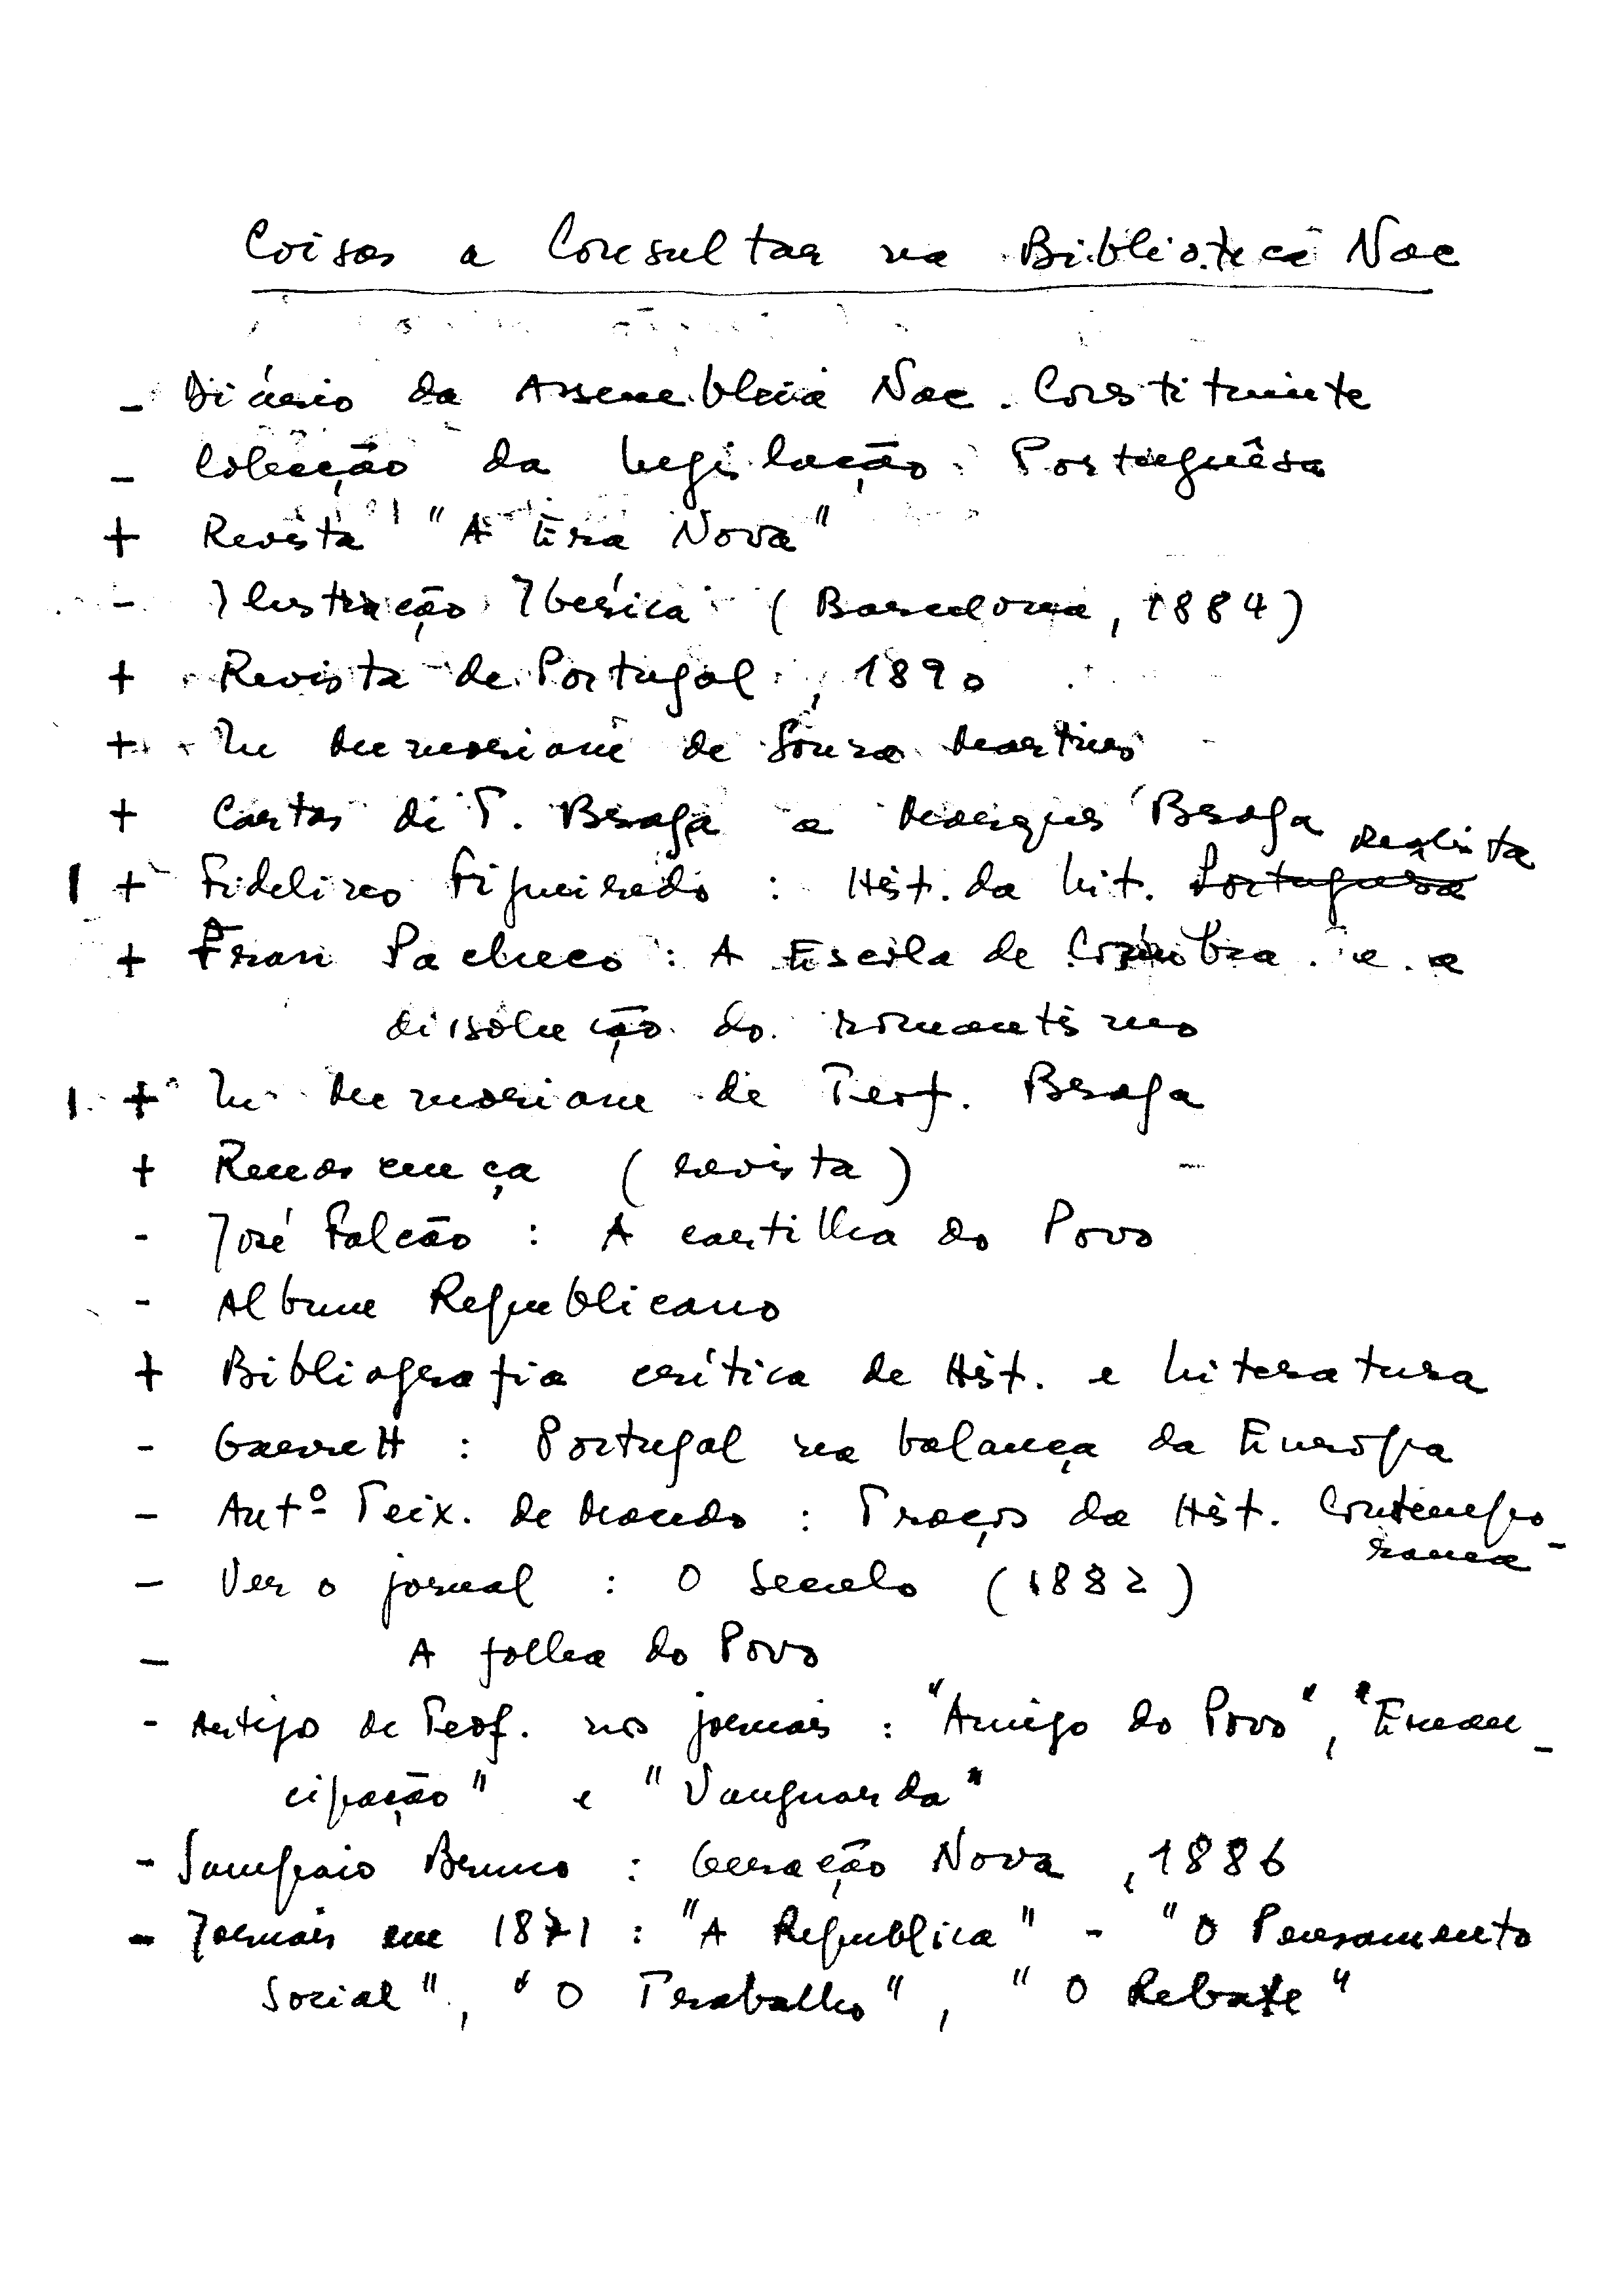 Coisas a Consultar na Biblioteca Nac
- Diário da Assembleia Nac. Constituinte
- Colecção da Legislação Portuguêsa
+ Revista "A Era Nova"
- Ilustração Ibérica (Barcelona, 1884)
+ Revista de Portugal, 1890
+ In Memoriam de Sousa Martins
+ Cartas de T. Braga a Marques Braga
| + Fidelino Figueiredo : Hist. da Lit. Portuguesa Realista
+ Fran Pacheco : A Escola de Coimbra e a
dissolução do romantismo
| + In Memoriam de Teof. Braga
+ Renascença (revista)
- José Falcão : A cartilha do Povo
- Album Republicano
+ Bibliografia crítica de Hist. e Literatura
- Garrett : Portugal na balança da Europa
- Antº Teix. de Macedo : Traços da Hist. Contempo-
ranea
- Ver o jornal : O Seculo (1882)
- A folha do Povo
- Artigo de Teof. nos jornais : "Amigo do Povo", "Eman-
cipação" e "Vanguarda"
- Sampaio Bruno : Geração Nova, 1886
- Jornais em 1871 : "A Republica" - "O Pensamento
Social", "O Trabalho", "O Rebate"